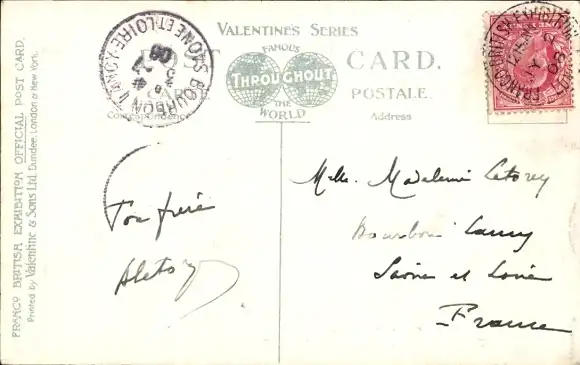 VALENTINE'S SERIES
FAMOUS
THROUGHOUT
THE
WORLD
POST CARD.
CARTE POSTALE.
Correspondence
Address
FRANCO BRITISH EXHIBITION OFFICIAL POST CARD.
Printed by Valentine & Sons Ltd. Dundee, London & New York.
BOURBON LANCY
SAONE ET LOIRE
FRANCO BRITISH EXHIBITION
08
Ton frère
Aletoy
Melle. Madeleine Letorey
Bourbon Lancy
Saône et Loire
France